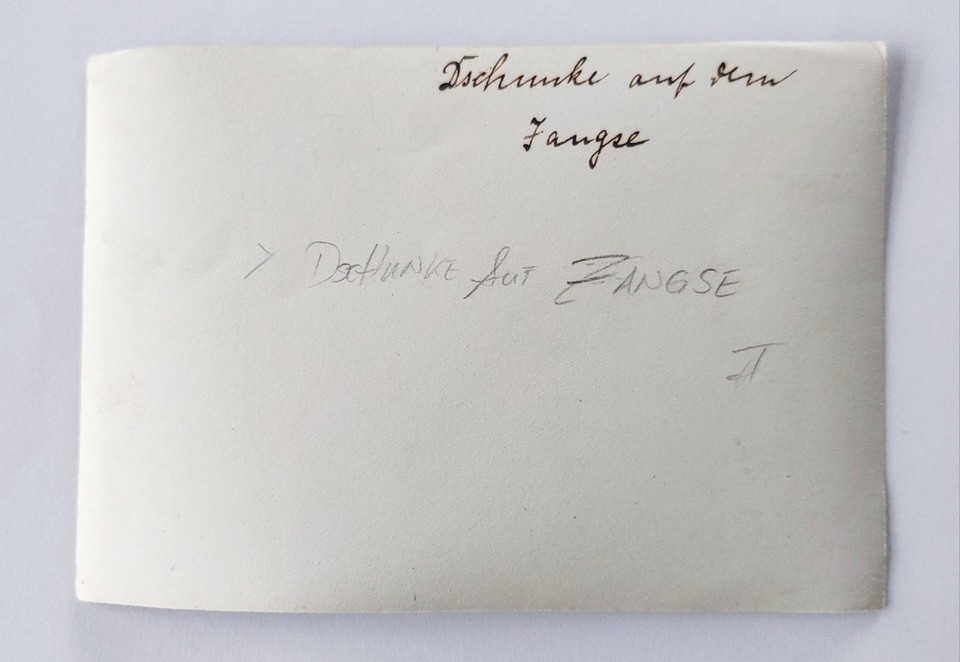 Dschunke auf dem
Jangse
> DSCHUNKE AUF ZANGSE
II